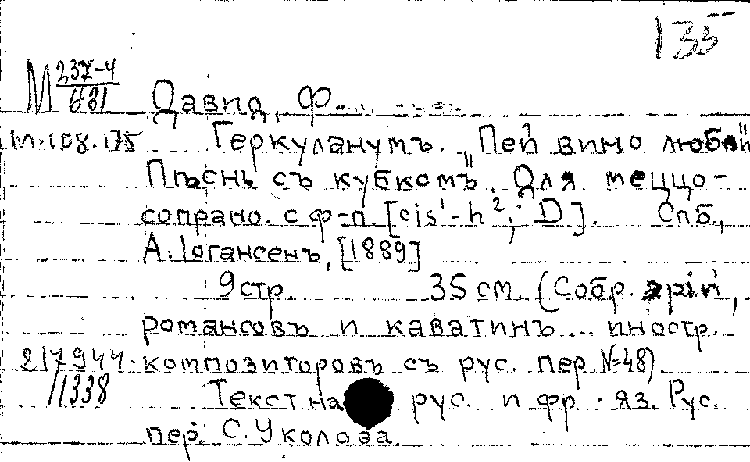 135
М 237-4/681 Давид, Ф.
М.108.175 Геркуланумъ. "Пей вино любви"
Пѣснь съ кубкомъ". Для меццо-
сопрано с ф-п. [cis¹-h²; D]. Спб.,
А. Іогансенъ, [1889]
9 стр. 35 см. (Собр. арій,
романсовъ и каватинъ... иностр.
217944 композиторовъ съ рус. пер. №48)
11338 Текст на рус. и фр. яз. Рус.
пер. С. Уколова.